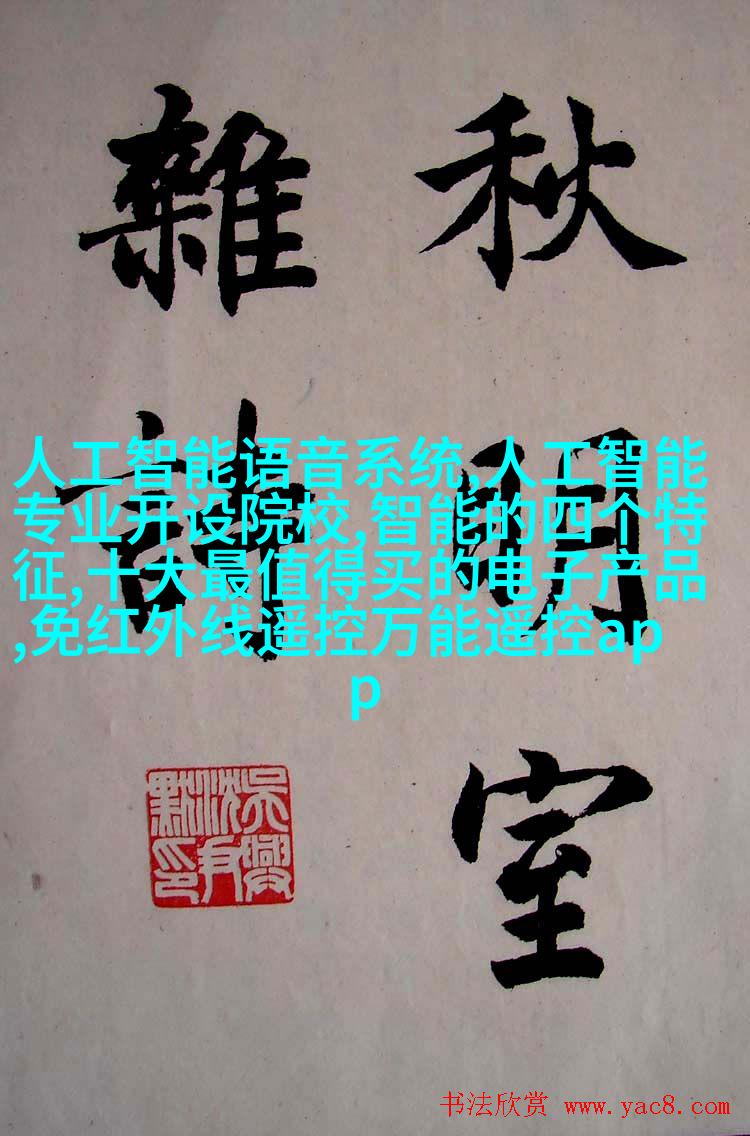 秋明室
雜詩
人工智能语音系统,人工智能
专业开设院校,智能的四个特
征,十大最值得买的电子产品
,免红外线遥控万能遥控ap
p
吳興
沈尹
默印
书法欣赏 www.yac8.com